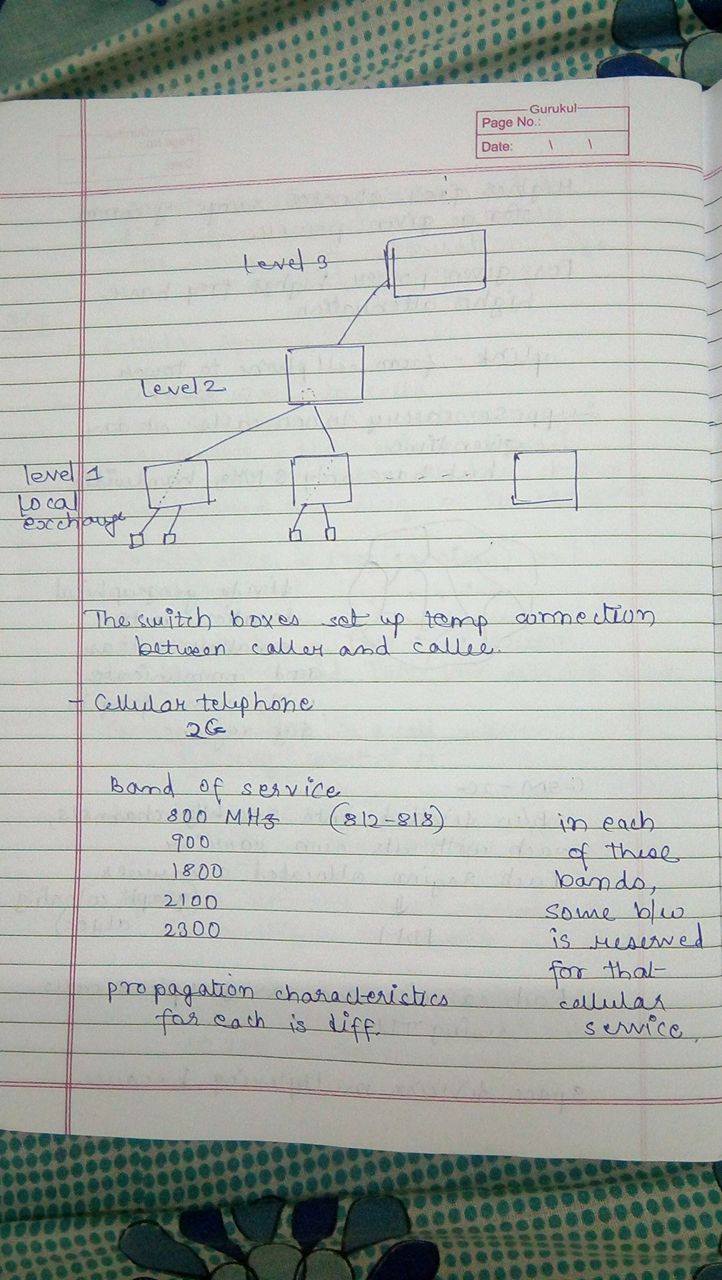 Gurukul
Page No.:
Date: \ \
Level 3
Level 2
level 1
Local
exchange
The switch boxes set up temp connection
between caller and callee.
- Cellular telephone
2G
Band of service
800 MHz (812-818)
900
1800
2100
2300
in each
of these
bands,
some b/w
is reserved
for that
cellular
service.
propagation characteristics
for each is diff.